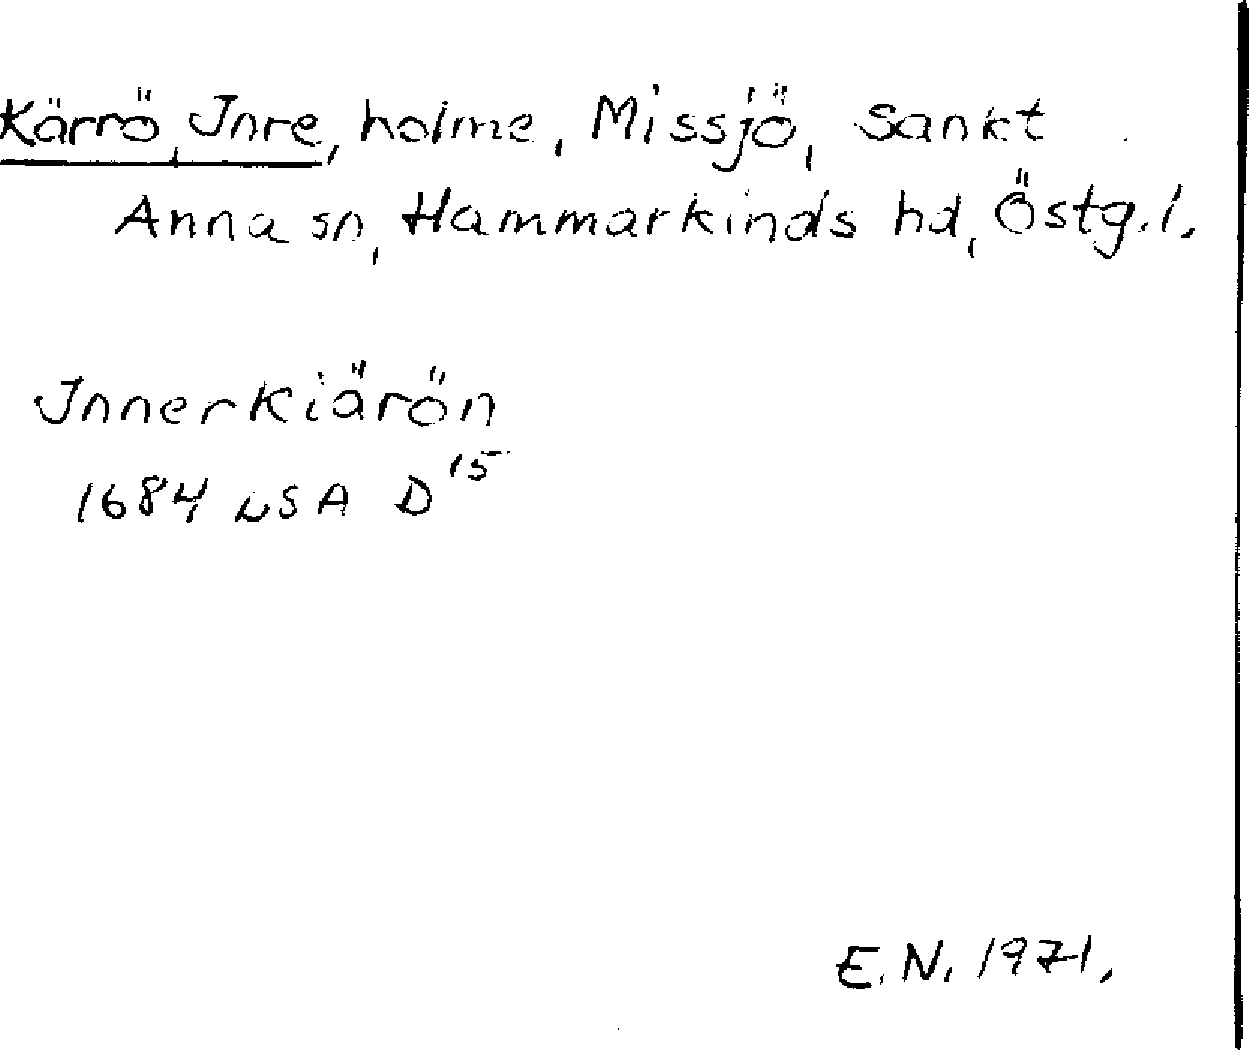 Kärrö, Inre, holme, Missjö, Sankt
Anna sn, Hammarkinds hd, Östg.l.
Innerkiärön
1684 LSA D¹⁵
E.N. 1971.